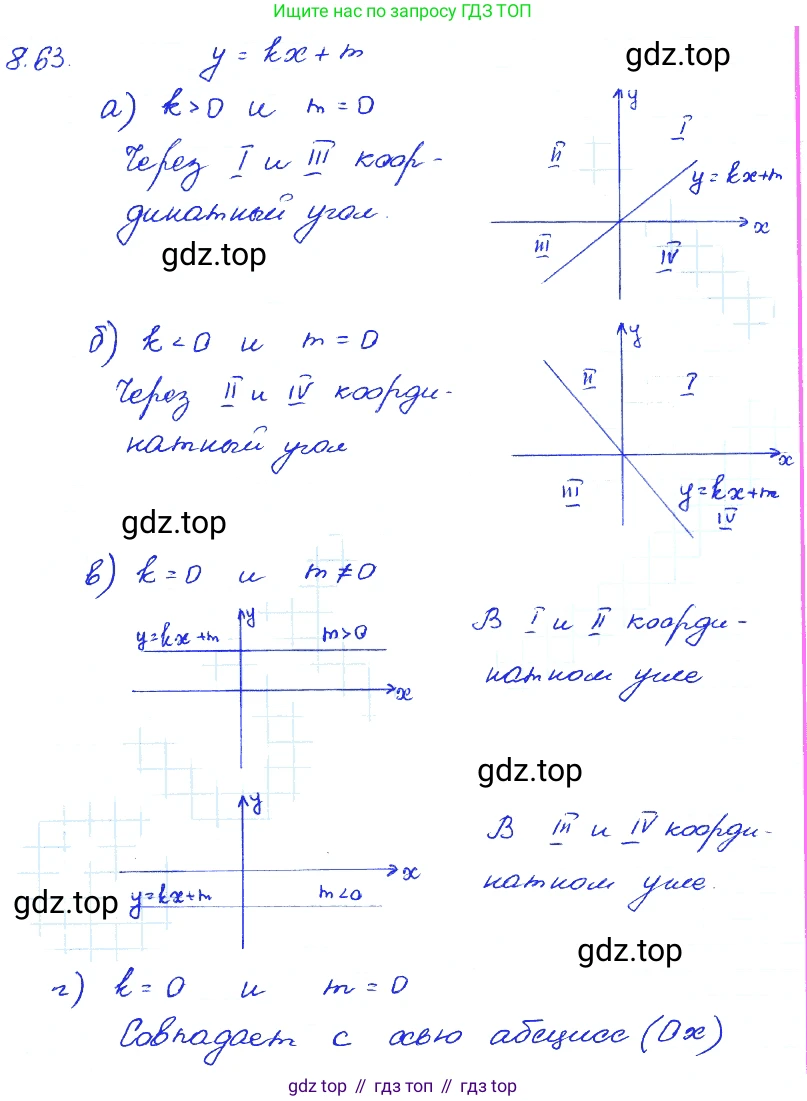 Ищите нас по запросу ГДЗ ТОП
8.63. y = kx + m
gdz.top
а) k > 0 и m = 0
Через I и III коор-
динатный угол.
gdz.top
y
II
I
y = kx+m
x
III
IV
б) k < 0 и m = 0
Через II и IV коорди-
натный угол
gdz.top
y
II
I
x
III
y = kx+m
IV
в) k = 0 и m ≠ 0
y
y = kx + m
m > 0
x
В I и II коорди-
натном угле
gdz.top
y
x
y = kx + m
m < 0
gdz.top
В III и IV коорди-
натном угле.
gdz.top
г) k = 0 и m = 0
Совпадает с осью абсцисс (Ox)
gdz.top // гдз топ // gdz.top